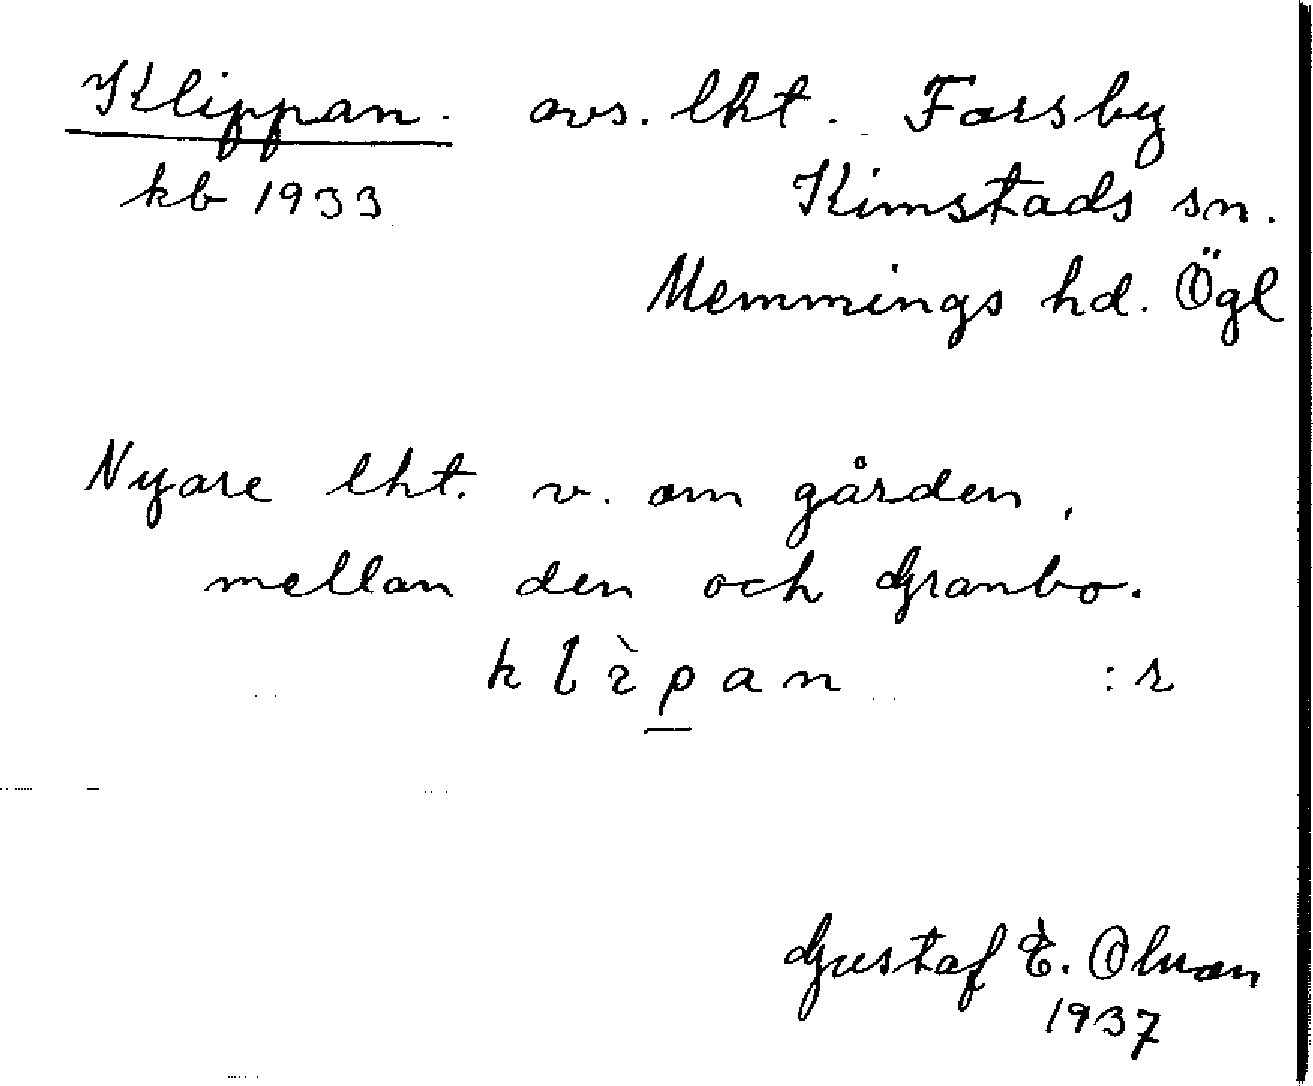 Klippan. avs. lht. Forsby
kb 1933 Kimstads sn.
Memmings hd. Ögl
Nyare lht. v. om gården,
mellan den och Granbo.
klìpan :r
Gustaf E. Olson
1937